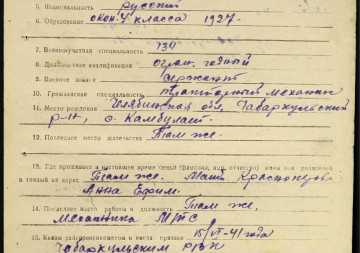 5. Национальность русский
6. Образование окон. 4 класса 1927.
7. Военно-учетная специальность 134
8. Дальнейшая квалификация огран. годный
9. Военное звание сержант
10. Гражданская специальность тракторный механик
11. Место рождения Челябинская обл., Чебаркульский
р-н, с. Камбулат.
12. Последнее место жительства Там же.
13. Где проживает в настоящее время семья (фамилия, имя, отчество) жены или родителей
и точный их адрес Там же. Мать Краснопёрова
Анна Ефим.
14. Последнее место работы и должность Там же.
Механика МТС
15. Каким райвоенкоматом и число призыва 15/VI-41 года
Чебаркульским РВК